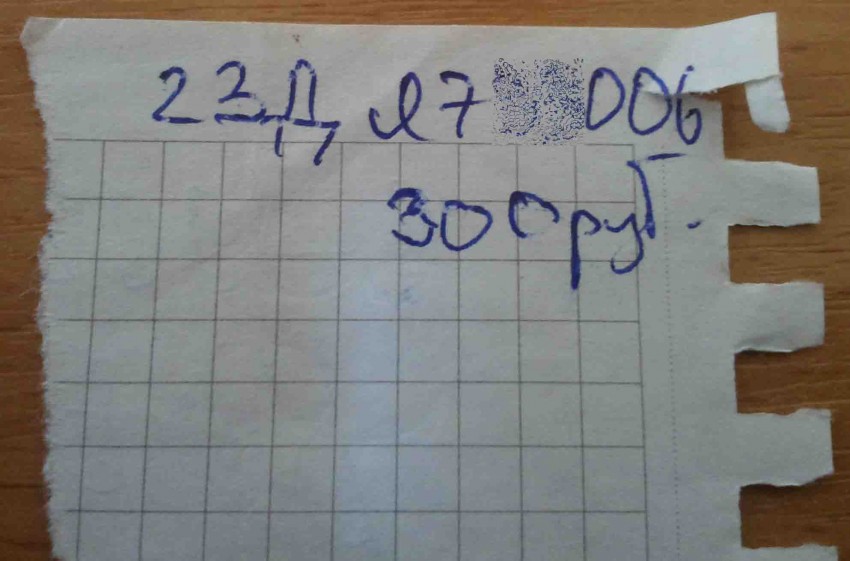 23Д Я7 006
300руб.